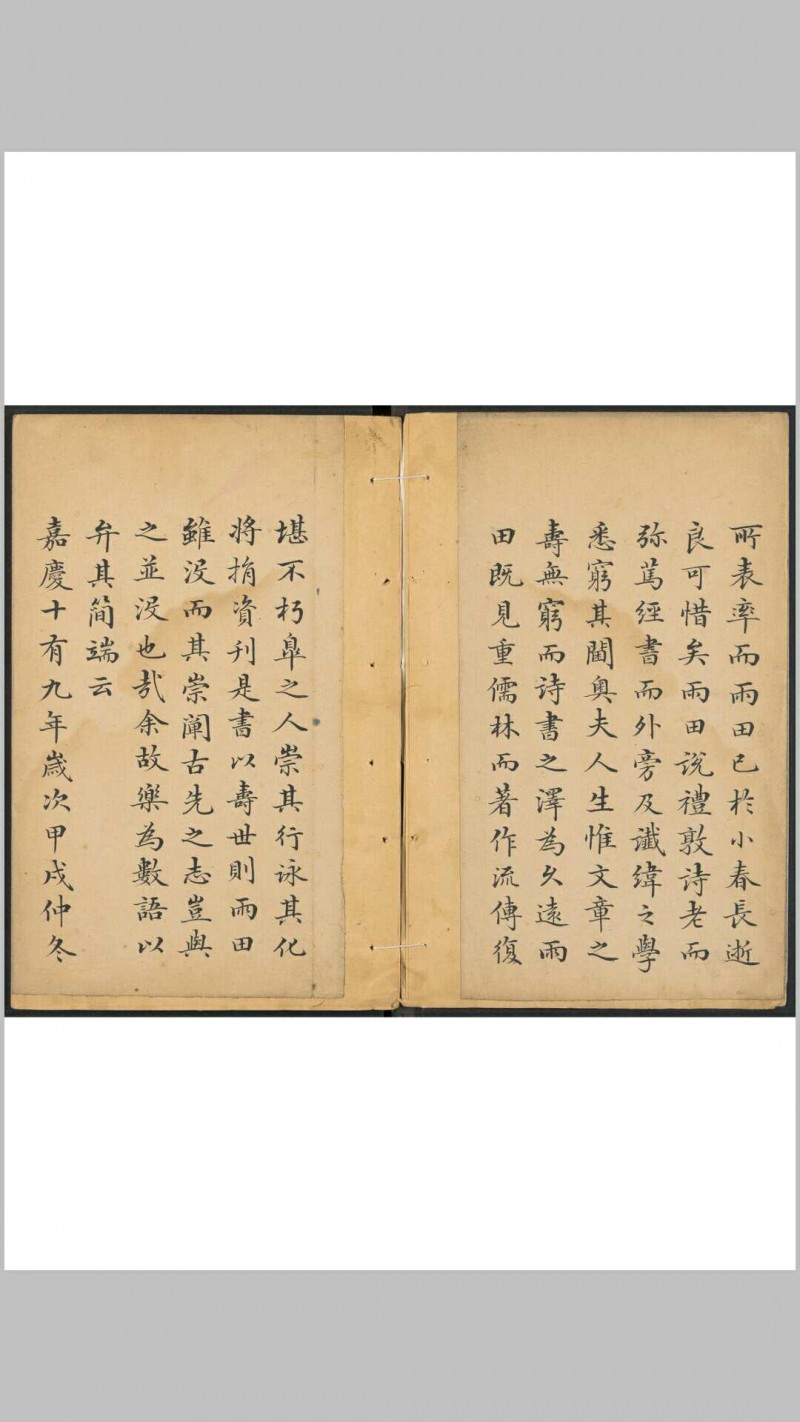 所表率而雨田已於小春長逝
良可惜矣雨田說禮敦詩老而
弥篤經書而外旁及讖緯之學
悉窮其閫奥夫人生惟文章之
壽無窮而詩書之澤為久遠雨
田既見重儒林而著作流傳復
堪不朽皐之人崇其行詠其化
將捐資刊是書以壽世則雨田
雖没而其崇闡古先之志豈與
之並没也㦲余故樂為數語以
弁其简端云
嘉慶十有九年歲次甲戌仲冬